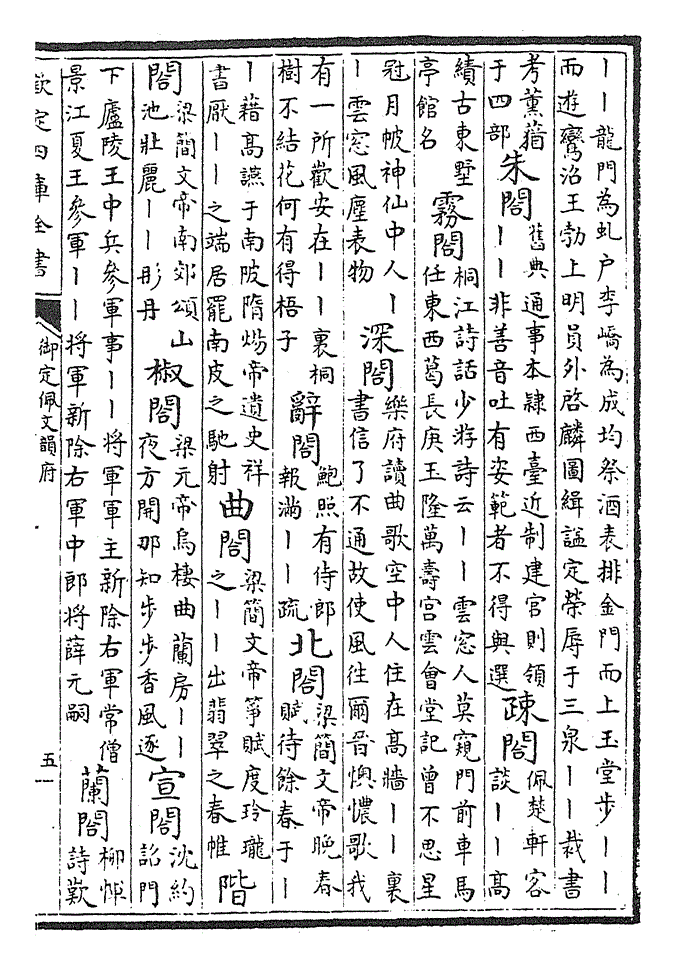 ｜｜龍門為虬戶李嶠為成均祭酒表排金門而上玉堂步｜｜
而遊鸞沼王勃上明員外啓麟圖緝謚定榮辱于三泉｜｜裁書
考薰蕕于四部 朱閤 舊典通事本隸西臺近制建官則領｜｜非善音吐有姿範者不得與選 疎閤 佩楚軒客談｜｜高
續古東墅亭館名 霧閤 桐江詩話少游詩云｜｜雲窓人莫窺門前車馬任東西葛長庚玉隆萬壽宮雲會堂記曾不思星
冠月帔神仙中人｜｜雲窓風塵表物 深閤 樂府讀曲歌空中人住在高牆｜｜裏書信了不通故使風往爾晉懊憹歌我
有一所歡安在｜｜裏桐樹不結花何有得梧子 辭閤 鮑照有侍郎報滿｜｜疏 北閤 梁簡文帝晚春賦待餘春于｜
｜藉高讌于南陂隋煬帝遺史祥書厭｜｜之端居罷南皮之馳射 曲閤 梁簡文帝箏賦度玲瓏之｜｜出翡翠之春帷 階
閤 梁簡文帝南郊頌山池壯麗｜｜彤丹 椒閤 梁元帝烏棲曲蘭房｜｜夜方開那知步步香風逐 宣閤 沈約詔門
下廬陵王中兵參軍事｜｜將軍軍主新除右軍常僧景江夏王參軍｜｜將軍新除右軍中郎將薛元嗣 蘭閤 柳惲詩歎
欽定四庫全書 御定佩文韻府 五一